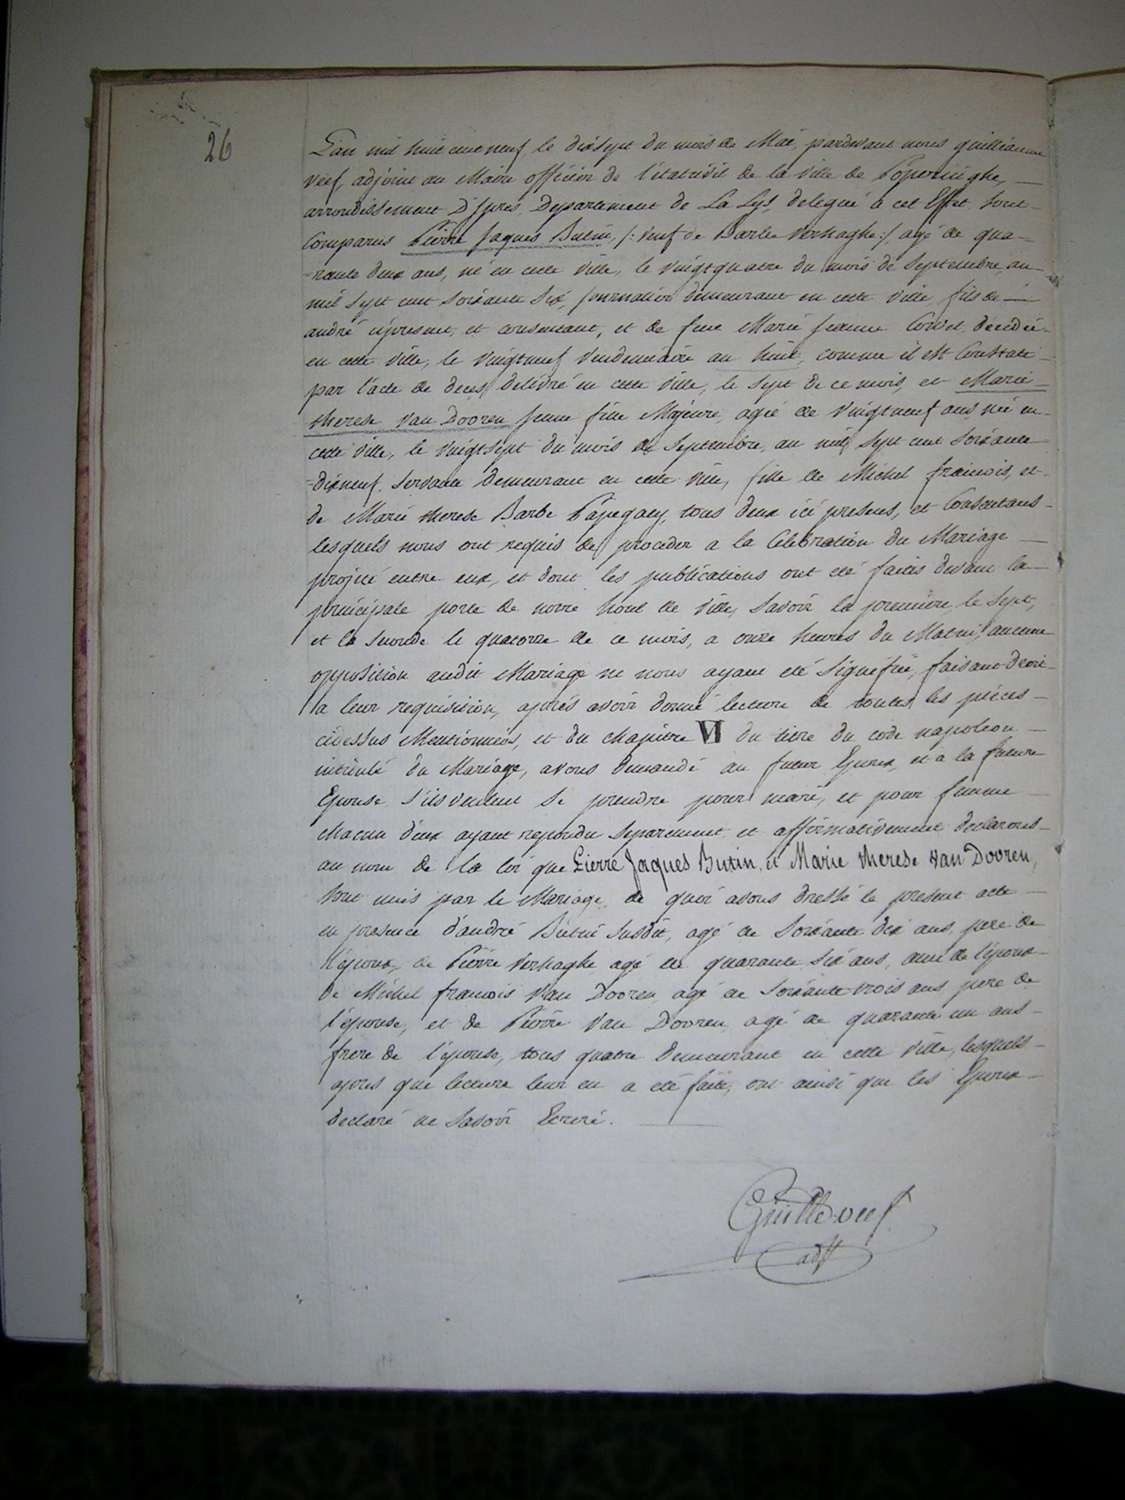 26
L'an mil huit cent neuf, le dixsept du mois de Mai, pardevant nous guilliaume
Veuf, adjoint au Maire officier de l'état civil de la ville de Poperinghe,
arrondissement D'Ypres, Departement de La Lys, delegué à cet Effet, sont
Comparus Pierre Jaques Butin, /: veuf de Barbe Verhaghe :/ agé de qua-
-rante deux ans, né en cette ville, le vingtquatre du mois de Septembre, an
mil sept cent soixante six, journalier demeurant en cette ville, fils de
andré ci present, et consentant, et de feue Marie Jeanne décedée
en cette ville, le vingtneuf vendemiaire an huit, comme il est Constaté
par l'acte de deces, delivré en cette ville, le sept de ce mois, et Marie
therese Van Dooren jeune fille Majeure, agée de vingtneuf ans, née en
cette ville, le vingtsept du mois de Septembre, an mil sept cent soixante
-dixneuf, servante demeurant en cette ville, fille de Michel francois, et
de Marie therese Barbe Papegaey, tous deux ici presens, et Consentans
lesquels nous ont requis de proceder a la Celebration du Mariage
projeté entre eux, et dont les publications ont eté faites devant la
principale porte de notre hotel de ville, Savoir la premiere le Sept,
et la seconde le quatorze de ce mois, a onze heures du Matin, aucune
opposition audit Mariage ne nous ayant eté Signifiée, faisant droit
a leur requisition, après avoir donné lecture de toutes les pièces
cidessus Mentionnées, et du chapitre VI du titre du code napoleon
intitulé du Mariage, avons demandé au futur Epoux, et a la future
Epouse s'ils veulent se prendre pour mari, et pour femme
chacun d'eux ayant repondu separement et affirmativement declarons
au nom de la loi que Pierre Jaques Butin, et Marie therese Van Dooren,
sont unis par le Mariage, de quoi avons dressé le present acte
en presence d'andré Butin susdit, agé de soixante dix ans, pere de
l'époux, de Pierre Verhaghe agé de quarante six ans, ami de l'époux
de Michel francois Van Dooren, agé de soixante trois ans, pere de
l'épouse, et de Pierre Van Dooren, agé de quarante un ans
frere de l'épouse, tous quatre demeurant en cette ville, lesquels
apres que lecture leur en a eté faite, ont ainsi que les Epoux
declaré ne savoir Ecrire.
Guille veuf
adjt